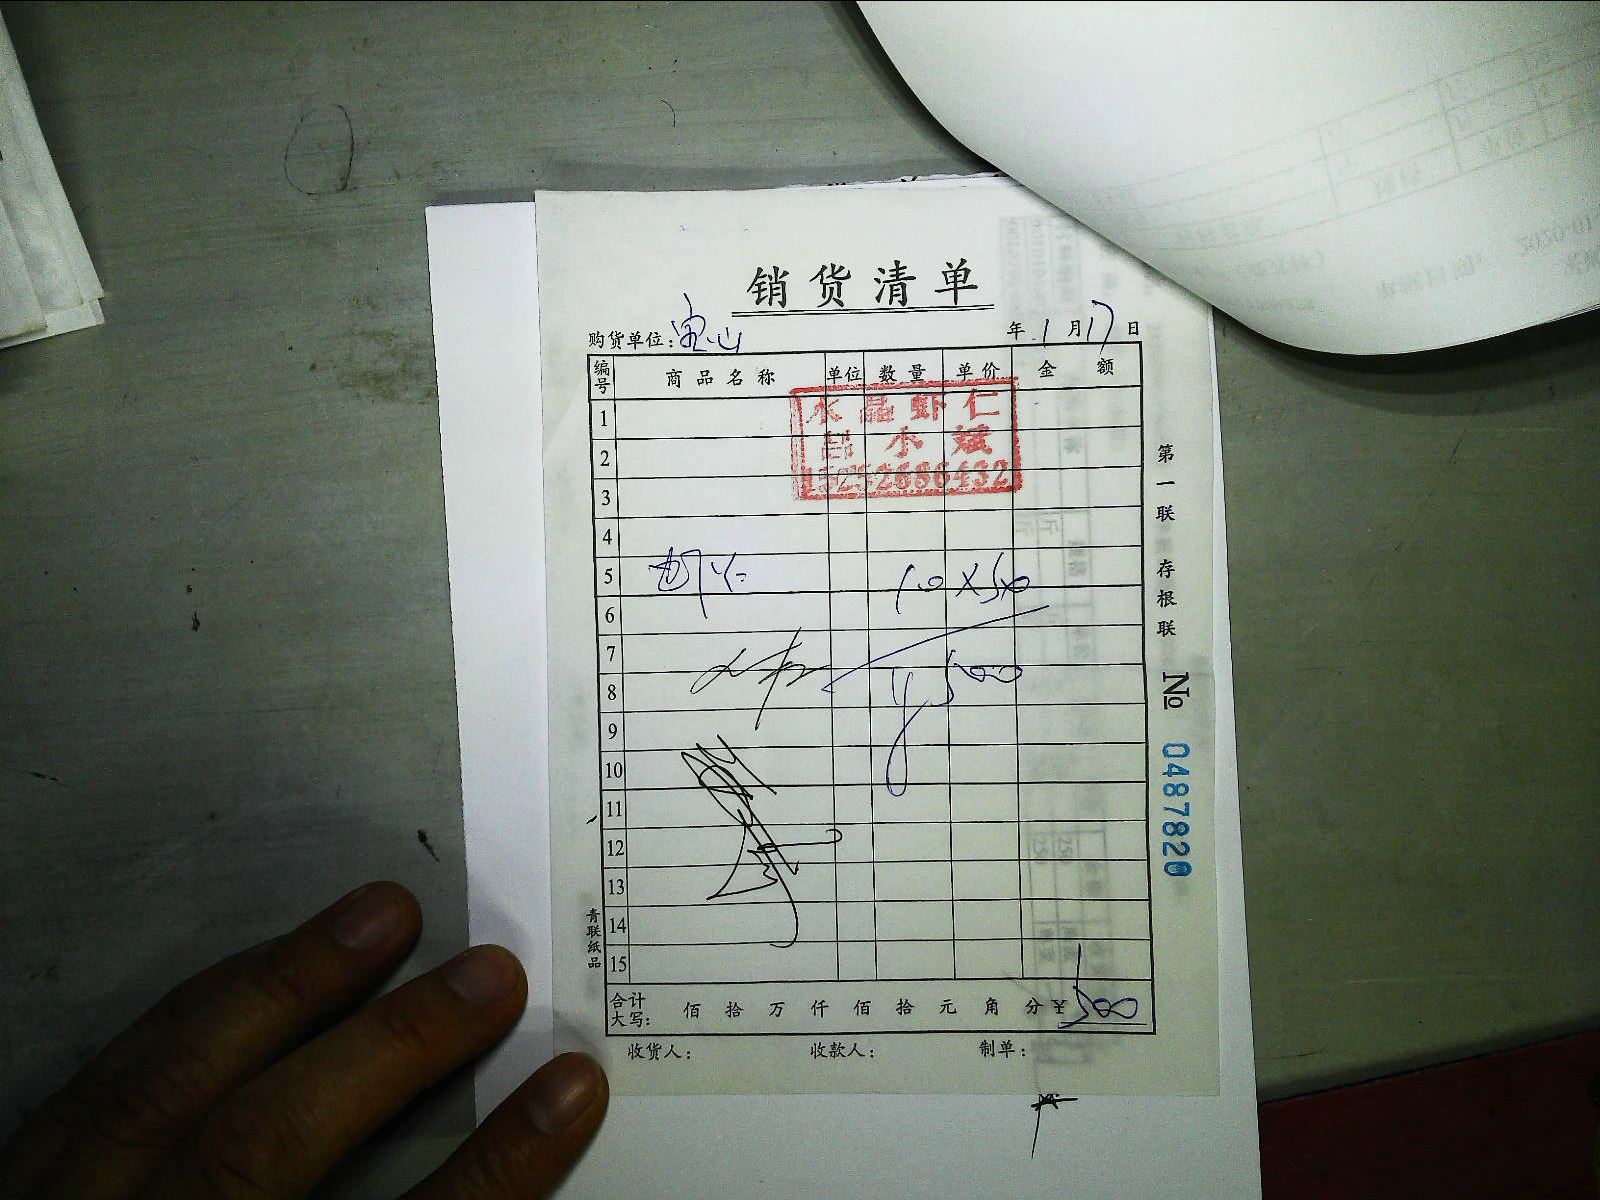 销货清单
购货单位: 宝山 年 1 月 17 日
编号 商品名称 单位 数量 单价 金额
水晶虾仁
吕小斌
15252686432
1
2
3
4
5 虾仁 10×50
6
7
8 ¥500
9
10
11
12
13
14
15
合计大写: 佰 拾 万 仟 佰 拾 元 角 分 ¥ 500
收货人: 收款人: 制单:
第一联 存根联
№ 0487820
青联纸品